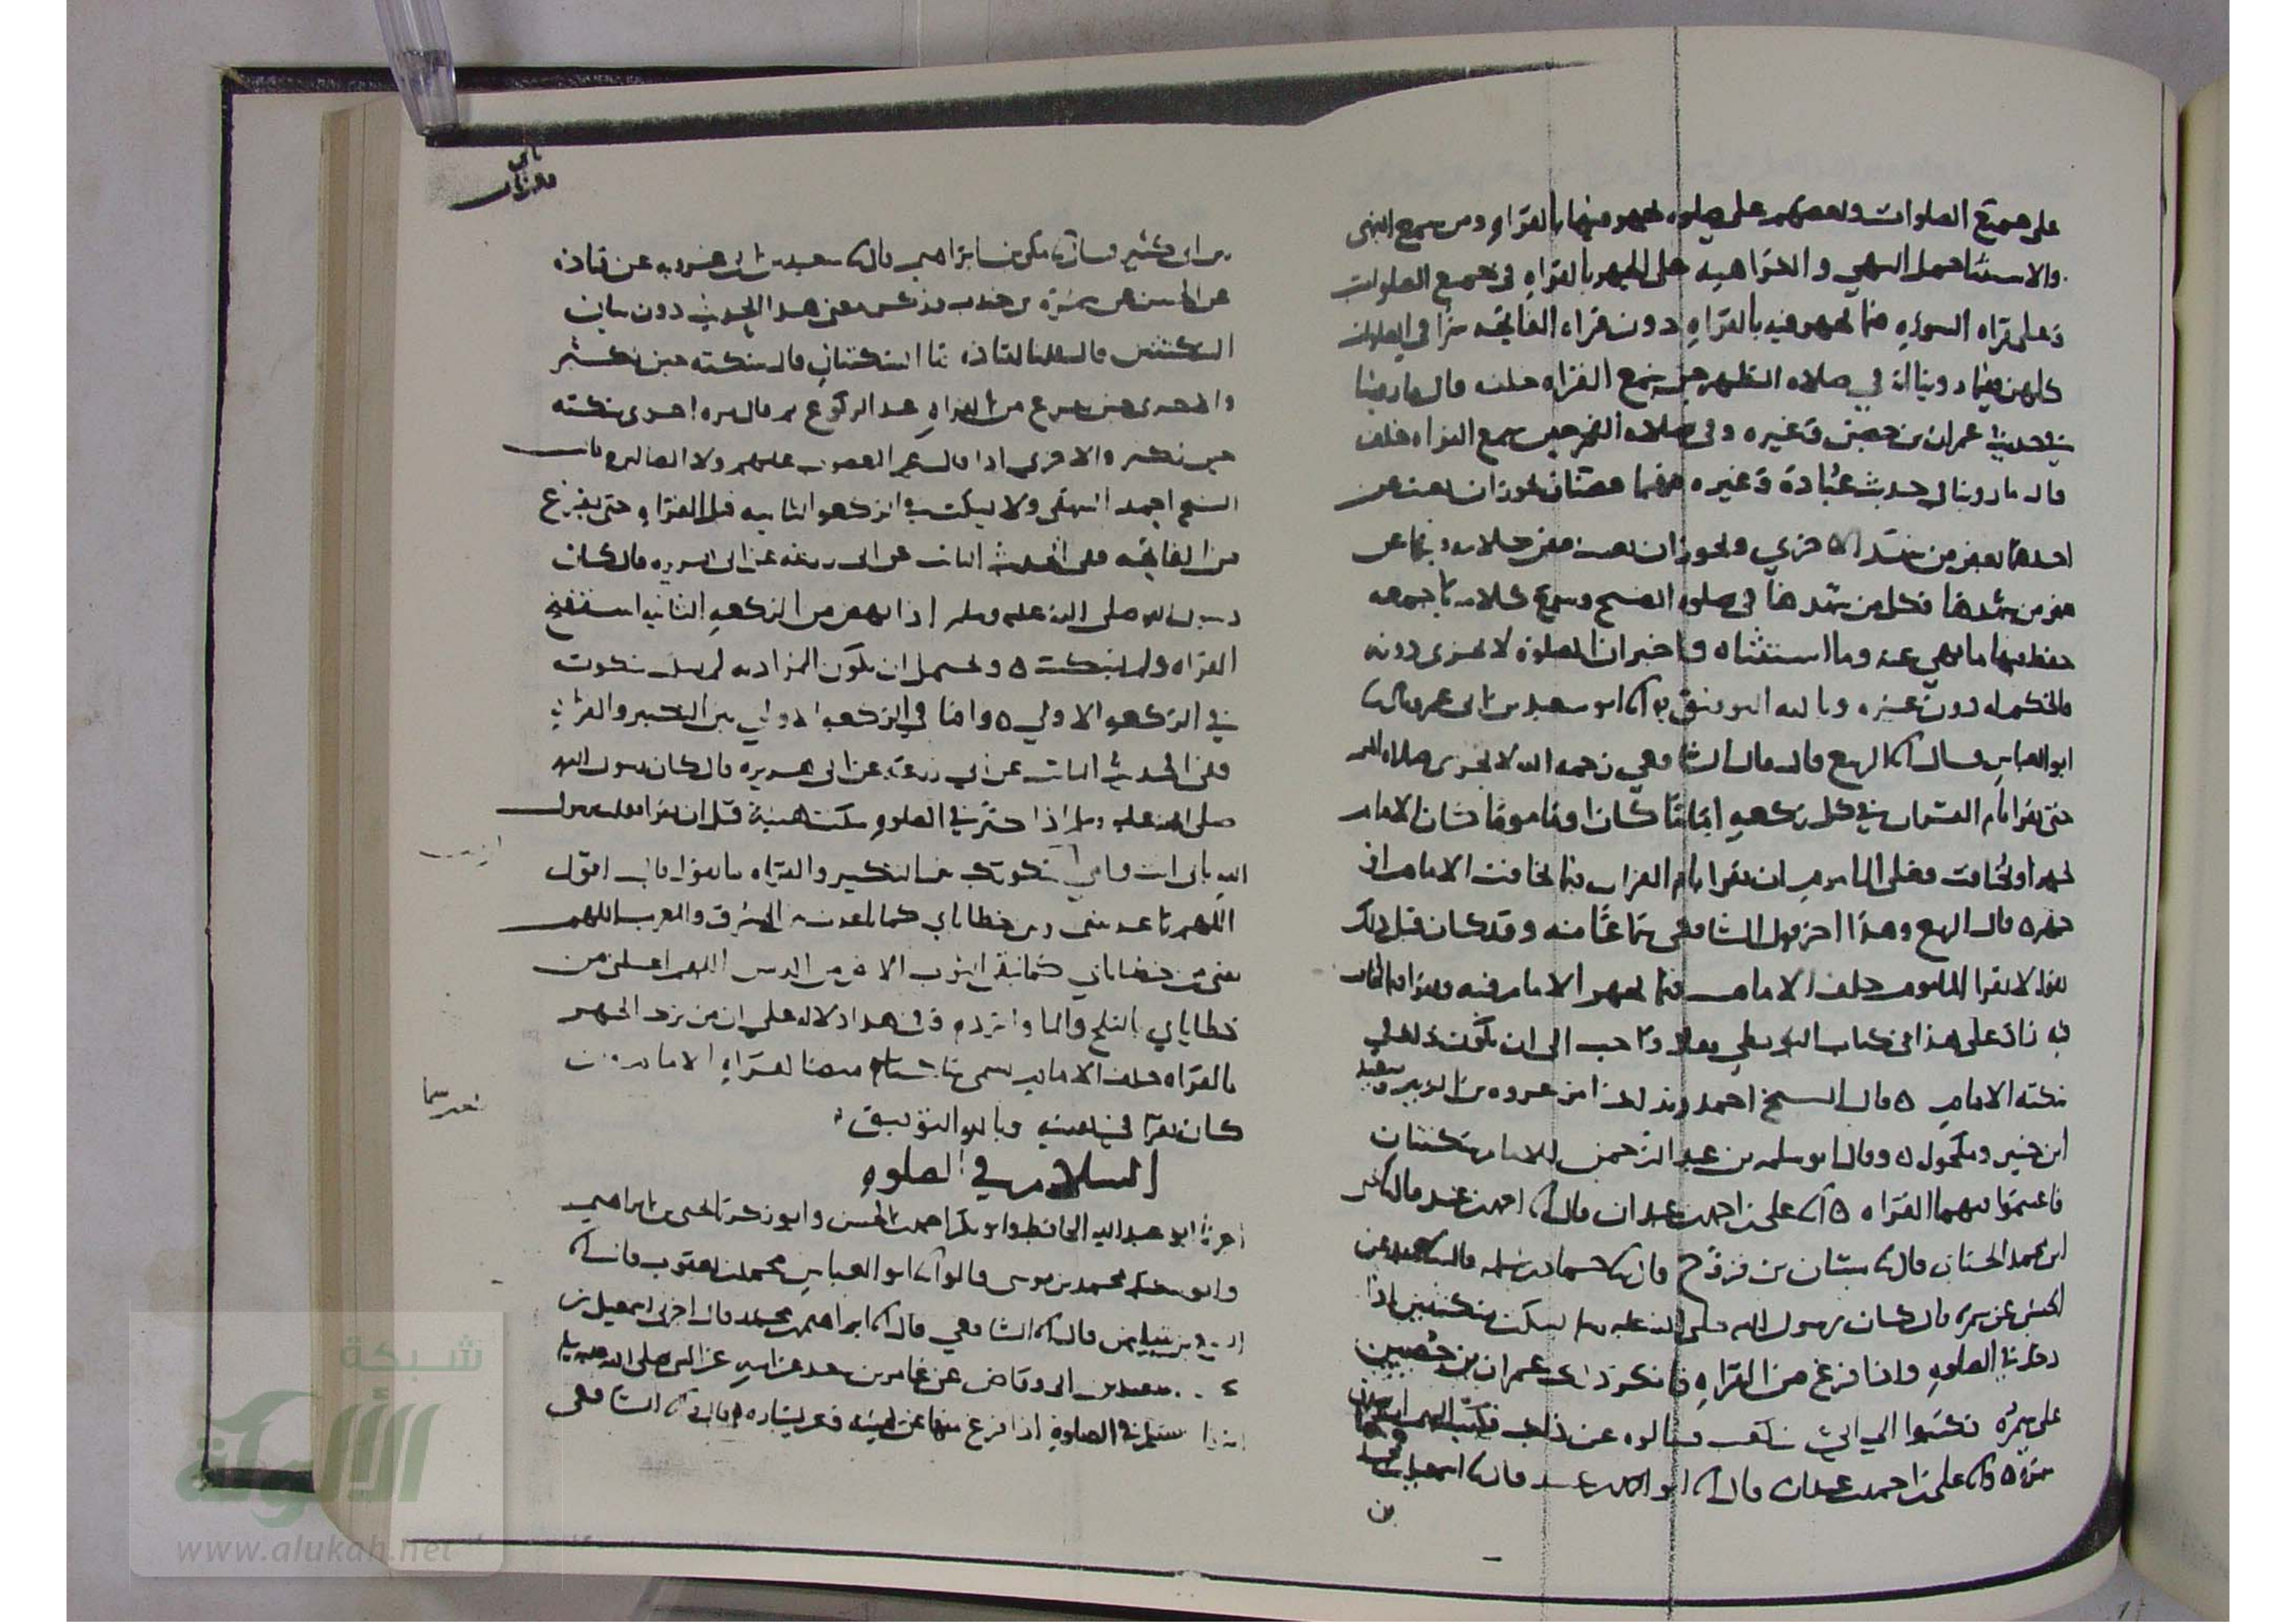 على جميع الصلوات وبعضهم على صلوة يجهر فيها بالقراة ومن سمع النهي
والاستثنا حمل النهي والكراهية على الجهر بالقراة في جميع الصلوات
وعلى قراه السورة فيما يجهر فيه بالقراة دون قراه الفاتحة سرا في الصلوات
كلهن فيما روينا في صلاه الظهر حين سمع القراه خلفه قال ما روينا
في حديث عمران بن حصين وغيره وفي صلاه الفجر حين سمع القراه خلفه
قال ما روينا في حديث عبادة وغيره فهما قصتان يجوز ان يغيب عن
احدهما بعض من شهد الاخري ويجوز ان يغيب بعض كلامه فيهما عن
بعض من شهدهما فكل من شهدهما في صلوة الصبح وسمع كلامه باجمعه
حفظ فيها ما نهي عنه وما استثناه واخبر ان الصلوة لا تجزي دونه
فالحكم له دون غيره وبالله التوفيق ابو سعيد بن ابى عمرو قال
ابو العباس قال الربيع قال قال الشافعي رحمه الله لا تجزى صلاه المر
حتى يقرا بام القران في كل ركعة اماما كان او ماموما كان الامام
يجهر او يخافت فعلى الماموم ان يقرا بام القران فيما يخافت الامام او
جهر ٥ قال الربيع وهذا اخر قول الشافعي سماعا منه وقد كان قبل ذلك
يقول لا يقرا الماموم خلف الامام فيما يجهر الامام فيه ويقرا فيما يخافت
فيه زاد على هذا في كتاب البويطي فقال واحب الى ان يكون ذلك في
سكتة الامام ٥ قال الشيخ احمد وبذلك امر عروه بن الزبير وسعيد
ابن جبير ومكحول ٥ وقال ابو سلمه بن عبد الرحمن للامام سكتتان
فاغتنموا فيهما القراه ٥ على بن احمد بن عبدان قال احمد بن عبيد قال
ابن محمد قال شيبان بن فروخ قال حماد بن سلمه قال حميد عن
الحسن عن سمرة قال كان رسول الله صلى الله عليه وسلم يسكت سكتتين اذا
دخل في الصلوه واذا فرغ من القراة فانكر ذلك عمران بن حصين
على سمرة فكتبوا الي ابي بن كعب فسالوه عن ذلك فكتب اليهم ان صدق
سمرة ٥ على بن احمد بن عبدان قال عبيد قال اسمعيل
بن
بن ابى كثير قال مكي بن ابراهيم قال سعيد بن ابى عروبه عن قتاده
عن الحسن عن سمرة بن جندب فذكر معنى هذا الحديث دون بيان
السكتتين قال قلنا لقتاده ما السكتتان قال سكته حين يكبر
والاخرى حين يفرغ من القراة عند الركوع ثم قال مره اخرى سكته
حين يكبر والاخرى اذا قال غير المغضوب عليهم ولا الضالين قال
الشيخ احمد البيهقي ولا يسكت في الركعة الثانيه قبل القراة حتى يفرغ
من الفاتحه ففي الحديث الثابت عن ابى زرعه عن ابى هريره قال كان
رسول الله صلى الله عليه وسلم اذا نهض من الركعة الثانيه استفتح
القراه ولم يسكت ٥ ويحتمل ان يكون المراد به لم يسكت سكوته
في الركعة الاولي ٥ واما في الركعة الاولي بين التكبير والقراة
ففي الحديث الثابت عن ابي زرعة عن ابى هريره قال كان رسول الله
صلى الله عليه وسلم اذا كبر في الصلوة سكت هنية قبل ان يقرا فقلت يرسول
الله بابي انت وامي سكوتك بين التكبير والقراه ما تقول قال اقول
اللهم باعد بيني وبين خطاياي كما باعدت بين المشرق والمغرب اللهم
نقني من خطاياي كما ينقى الثوب الابيض من الدنس اللهم اغسلني من
خطاياي بالثلج والما والبرد وفي هذا دلاله على ان من ترك الجهر
بالقراه خلف الامام يسمى ساكتا
كان يقرا في نفسه وبالله التوفيق
السلام في الصلوة
اخبرنا ابو عبد الله الحافظ وابو بكر احمد بن الحسن وابو زكريا يحيى بن ابراهيم
وابو سعيد محمد بن موسى قالوا ابو العباس محمد بن يعقوب قال
الربيع بن سليمان قال الشافعي قال ابراهيم بن محمد قال اخبرني اسمعيل بن
سعد بن ابى وقاص عن عامر بن سعد عن ابيه عن النبي صلى الله عليه وسلم
يسلم في الصلوة اذا فرغ منها عن يمينه وعن يساره قال الشافعي